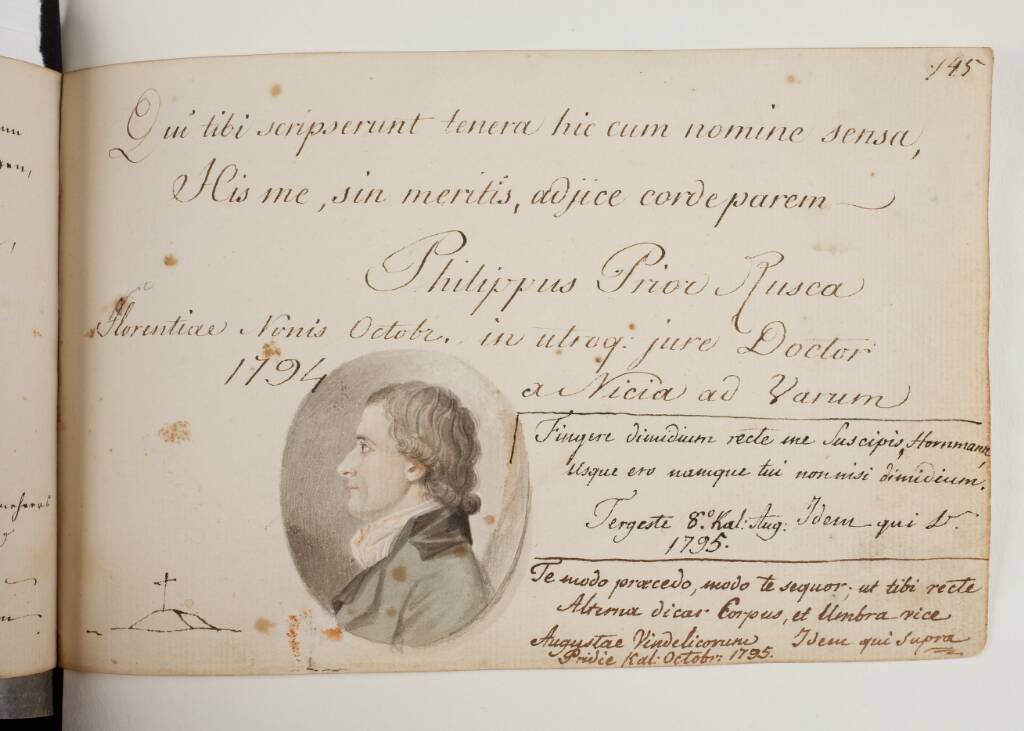 145
Qui tibi scripserunt tenera hic cum nomine sensa,
His me, sin meritis, adjice corde parem
Philippus Prior Rusca
Florentiae Nonis Octobr. in utroq: jure Doctor
1794
a Nicia ad Varum
Fingere dimidium recte me Suscipis, Hornmann,
Usque ero namque tui non nisi dimidium.
Tergeste 8.º Kal: Aug: Idem qui
1795.
Te modo præcedo, modo te sequor; ut tibi recte
Alterna dicar Corpus, et Umbra vice
Augustae Vindelicorum Idem qui supra
Pridie Kal: Octobr: 1795.